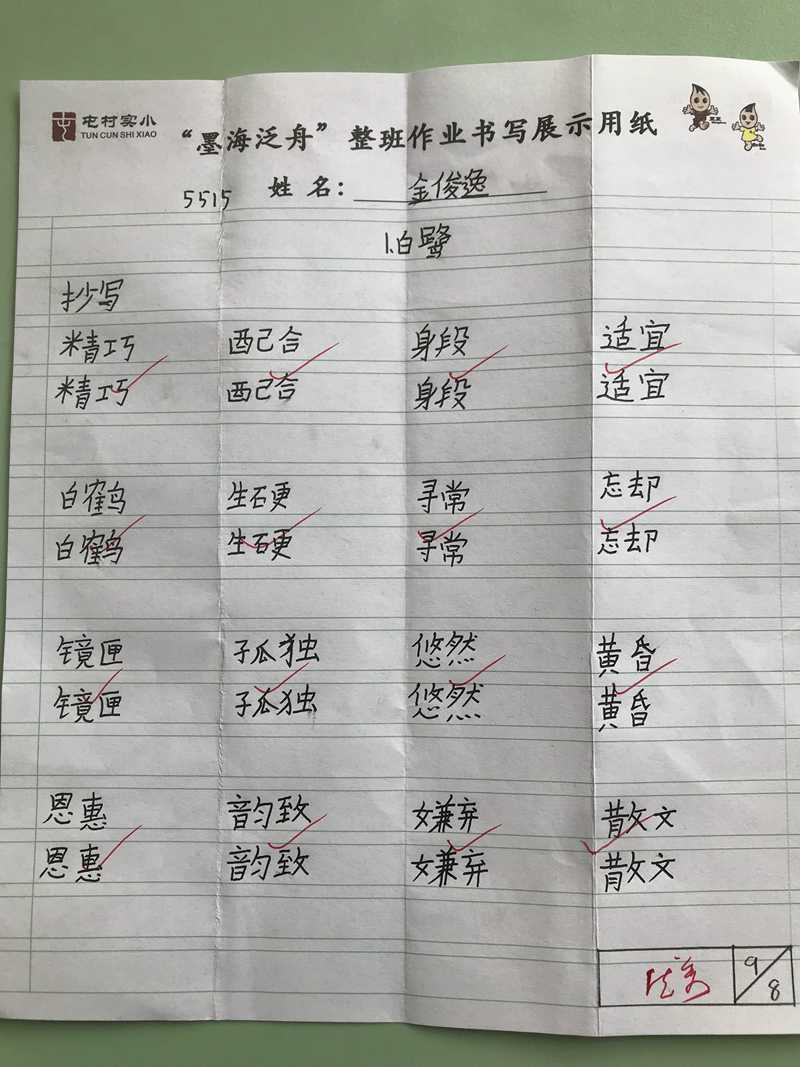 屯村实小
TUN CUN SHI XIAO
“墨海泛舟”整班作业书写展示用纸
5515 姓名：金俊逸
1.白鹭
抄写
精巧 配合 身段 适宜
精巧 配合 身段 适宜
白鹤 生硬 寻常 忘却
白鹤 生硬 寻常 忘却
镜匣 孤独 悠然 黄昏
镜匣 孤独 悠然 黄昏
恩惠 韵致 嫌弃 散文
恩惠 韵致 嫌弃 散文
优秀 9/8